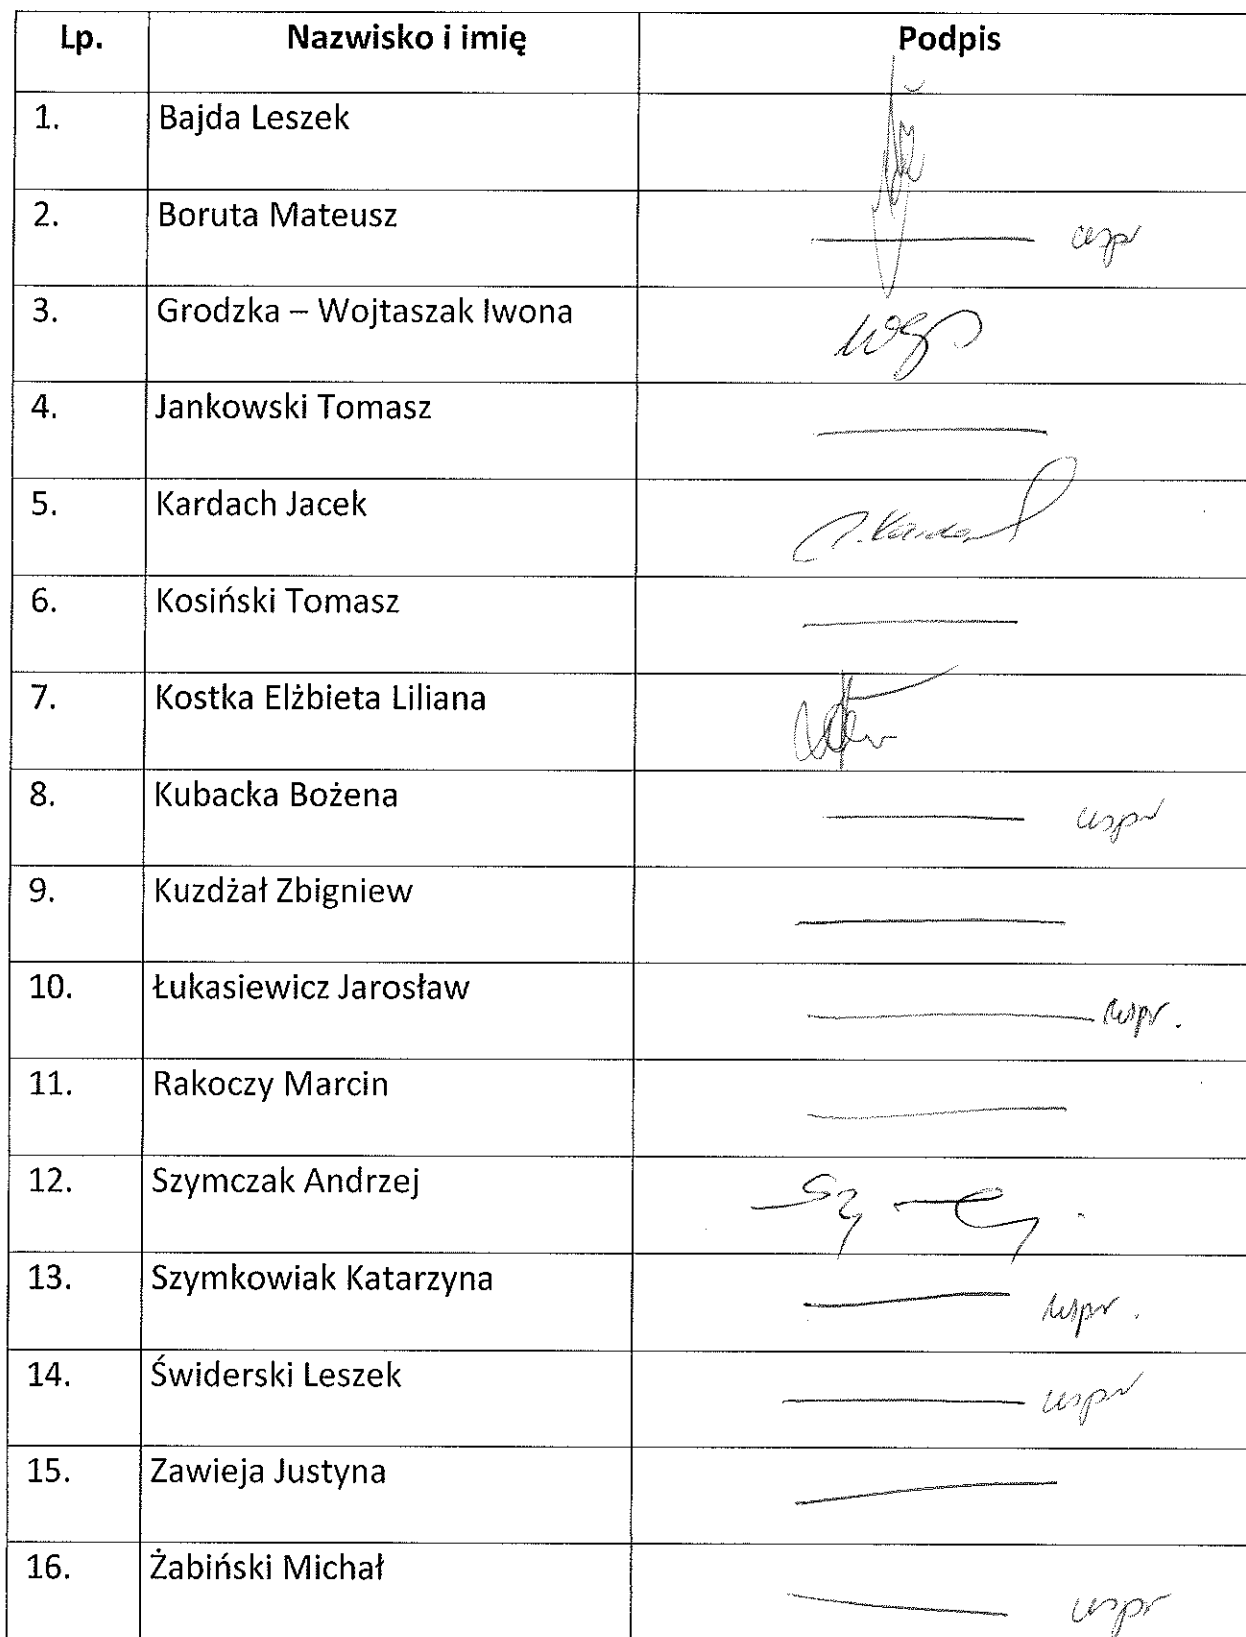 Lp. Nazwisko i imię Podpis
1. Bajda Leszek
2. Boruta Mateusz uspr
3. Grodzka – Wojtaszak Iwona
4. Jankowski Tomasz
5. Kardach Jacek
6. Kosiński Tomasz
7. Kostka Elżbieta Liliana
8. Kubacka Bożena uspr
9. Kuzdżał Zbigniew
10. Łukasiewicz Jarosław uspr.
11. Rakoczy Marcin
12. Szymczak Andrzej
13. Szymkowiak Katarzyna uspr.
14. Świderski Leszek uspr
15. Zawieja Justyna
16. Żabiński Michał uspr